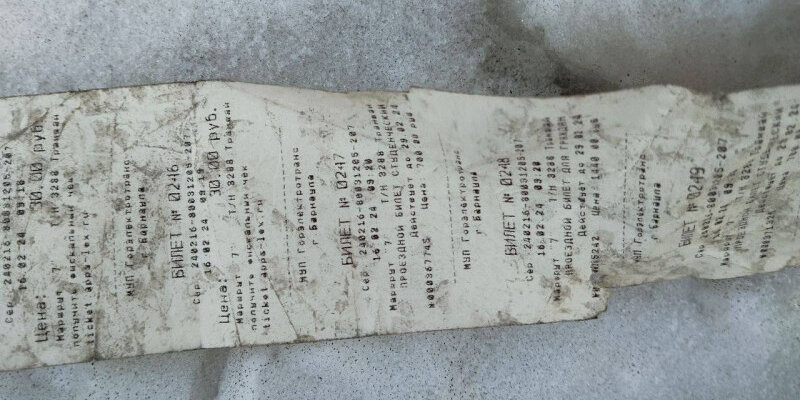 Сер. 240216-80031205-207
16.02.24 09:18
Цена: 30.00 руб.
Маршрут 7 Т/Н 3208 Трамвай
получите фискальный чек
ticket.apps-lex.ru
МУП Горэлектротранс
г Барнаула
БИЛЕТ № 0246
Сер. 240216-80031205-207
16.02.24 09:19
Цена: 30.00 руб.
Маршрут 7 Т/Н 3208 Трамвай
получите фискальный чек
ticket.apps-lex.ru
МУП Горэлектротранс
г Барнаула
БИЛЕТ № 0247
Сер. 240216-80031205-207
16.02.24 09:20
Маршрут 7 Т/Н 3208 Трамвай
ПРОЕЗДНОЙ БИЛЕТ СТУДЕНЧЕСКИЙ
Действует до 29.02.24
Цена 700.00 руб
№000367745
МУП Горэлектротранс
г Барнаула
БИЛЕТ № 0248
Сер. 240216-80031205-207
16.02.24 09:20
Маршрут 7 Т/Н 3208 Трамвай
ПРОЕЗДНОЙ БИЛЕТ ДЛЯ ГРАЖДАН
Действует до 29.02.24
Цена 1440.00 руб
МУП Горэлектротранс
г Барнаула
БИЛЕТ № 0249
Маршрут 7